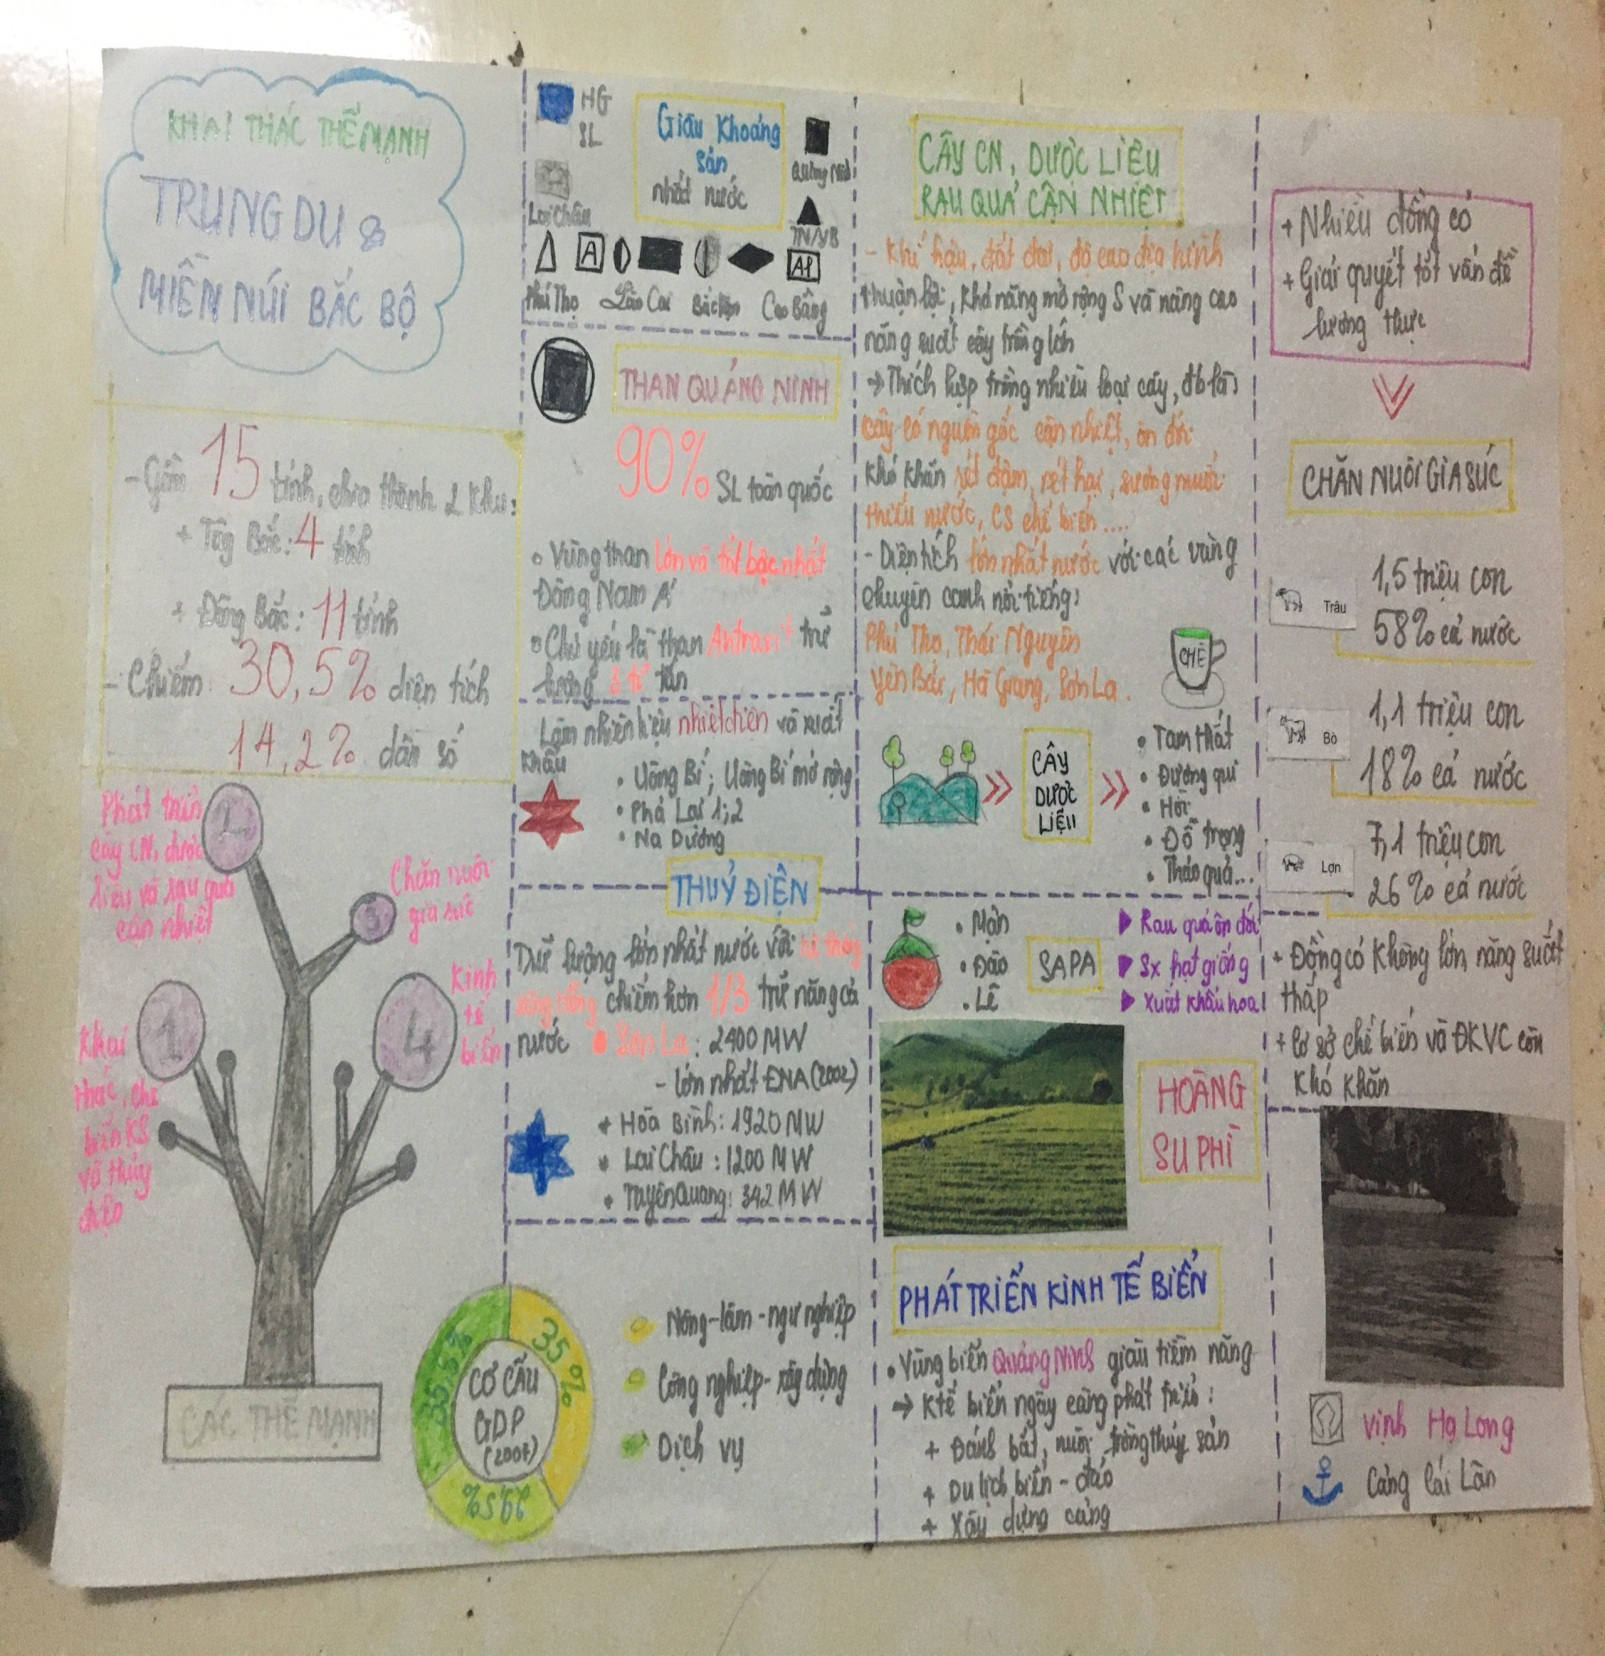 KHAI THÁC THẾ MẠNH
TRUNG DU &
MIỀN NÚI BẮC BỘ
- Gồm 15 tỉnh, chia thành 2 khu:
+ Tây Bắc: 4 tỉnh
+ Đông Bắc: 11 tỉnh
- Chiếm 30,5% diện tích
14,2% dân số
Phát triển
cây CN, dược
liệu và rau quả
cận nhiệt
2
Chăn nuôi
gia súc
3
Kinh
tế
biển
4
Khai
thác, chế
biến KS
và thủy
điện
1
CÁC THẾ MẠNH
HG
SL
Giàu khoáng
sản
nhất nước
Quảng Ninh
Lai Châu
TN/YB
A
Al
Phú Thọ Lào Cai Bắc Kạn Cao Bằng
THAN QUẢNG NINH
90% SL toàn quốc
• Vùng than lớn và tốt bậc nhất
Đông Nam Á
• Chủ yếu là than Antraxit trữ
lượng 3 tỉ tấn
Làm nhiên liệu nhiệt điện và xuất
khẩu
• Uông Bí; Uông Bí mở rộng
• Phả Lại 1;2
• Na Dương
THUỶ ĐIỆN
Trữ lượng lớn nhất nước với hệ thống
sông Hồng chiếm hơn 1/3 trữ năng cả
nước • Sơn La: 2400 MW
- lớn nhất ĐNA (2002)
• Hòa Bình: 1920 MW
• Lai Châu: 1200 MW
• Tuyên Quang: 342 MW
35%
35,5%
29,5%
CƠ CẤU
GDP
Nông-lâm-ngư nghiệp
Công nghiệp-xây dựng
Dịch vụ
CÂY CN, DƯỢC LIỆU
RAU QUẢ CẬN NHIỆT
- Khí hậu, đất đai, độ cao địa hình
thuận lợi, khả năng mở rộng S và nâng cao
năng suất cây trồng lớn
→ Thích hợp trồng nhiều loại cây, đb là
cây có nguồn gốc cận nhiệt, ôn đới
Khó khăn rét đậm, rét hại, sương muối
thiếu nước, CS chế biến....
- Diện tích lớn nhất nước với các vùng
chuyên canh nổi tiếng:
Phú Thọ, Thái Nguyên
Yên Bái, Hà Giang, Sơn La.
CHÈ
CÂY
DƯỢC
LIỆU
• Tam thất
• Đương qui
• Hồi
• Đỗ trọng
• Thảo quả...
• Mận
• Đào
• Lê
SAPA
Rau quả ôn đới
Sx hạt giống
Xuất khẩu hoa
HOÀNG
SU PHÌ
PHÁT TRIỂN KINH TẾ BIỂN
• Vùng biển Quảng Ninh giàu tiềm năng
→ Ktế biển ngày càng phát triển:
+ Đánh bắt, nuôi trồng thủy sản
+ Du lịch biển - đảo
+ Xây dựng cảng
+ Nhiều đồng cỏ
+ Giải quyết tốt vấn đề
lương thực
CHĂN NUÔI GIA SÚC
Trâu
1,5 triệu con
58% cả nước
Bò
1,1 triệu con
18% cả nước
Lợn
7,1 triệu con
26% cả nước
+ Đồng cỏ không lớn, năng suất
thấp
+ Cơ sở chế biến và ĐKVC còn
khó khăn
Vịnh Hạ Long
Cảng Cái Lân